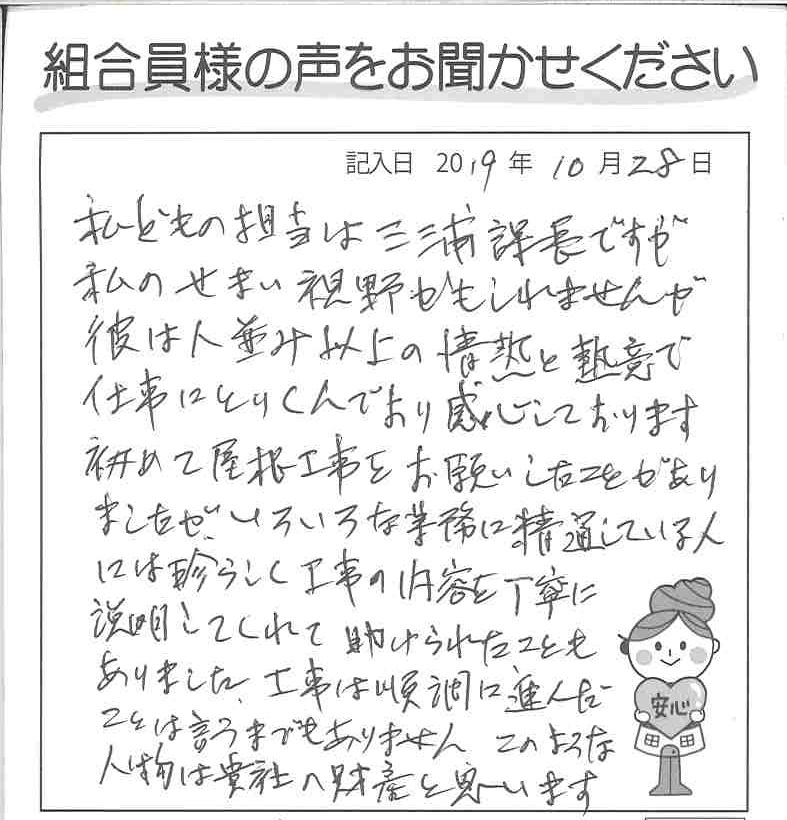 組合員様の声をお聞かせください
記入日 2019年 10月28日
私どもの担当は三浦課長ですが
私のせまい視野かもしれませんが
彼は人並み以上の情熱と熱意で
仕事にとりくんでおり感心しております
初めて屋根工事をお願いしたことがあり
ましたが、いろいろな業務に精通している人
には珍らしく工事の内容を丁寧に
説明してくれて助けられたことも
ありました 工事は順調に進んだ
ことは言うまでもありません このような
人物は貴社の財産と思います
安心